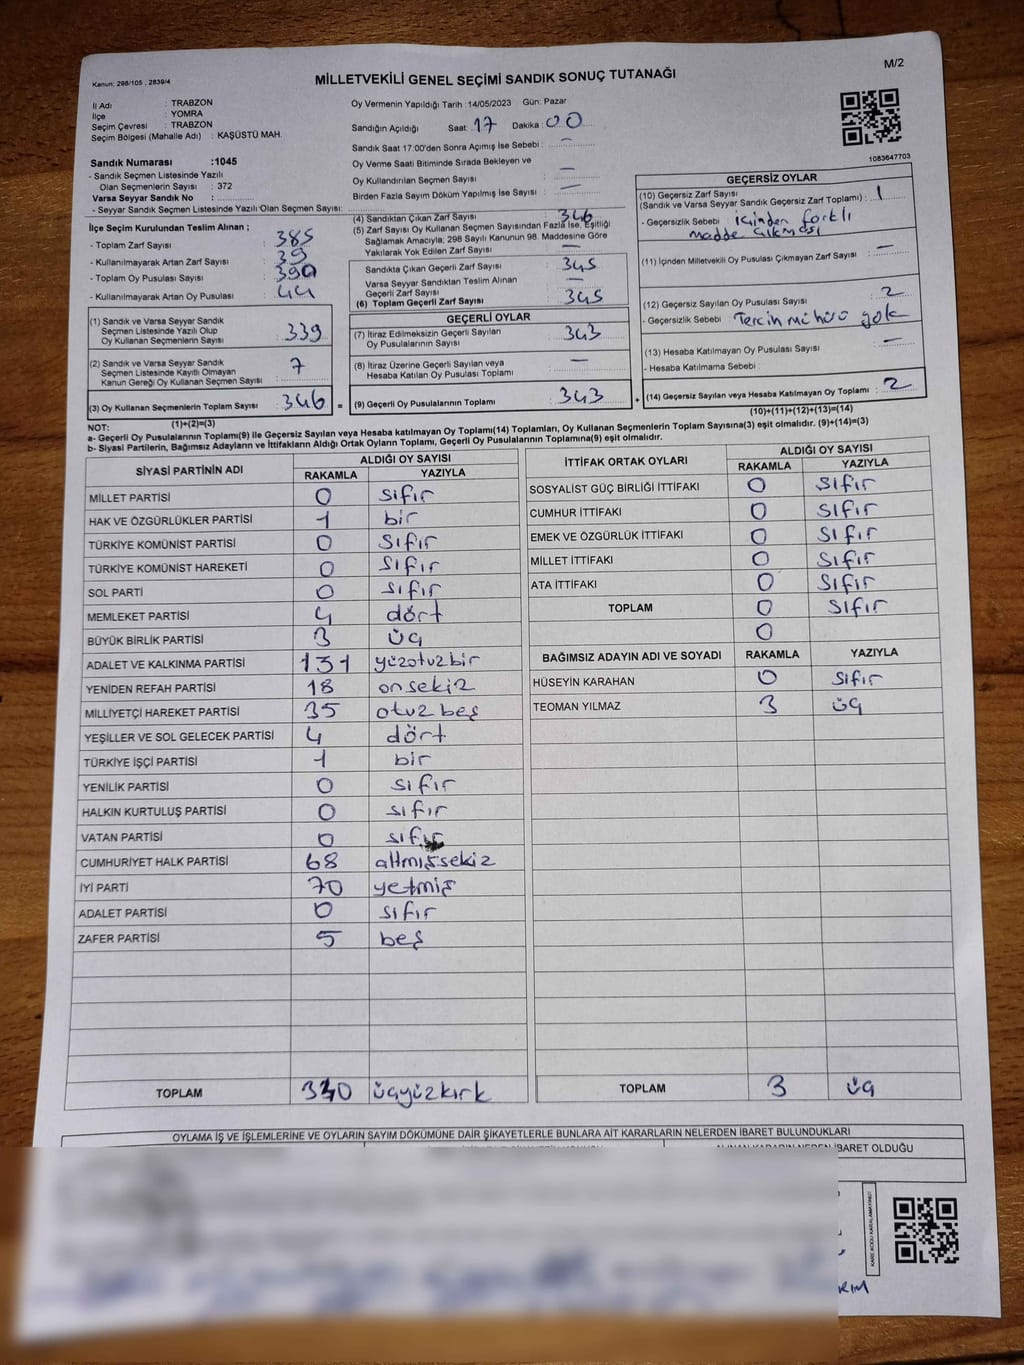 Kanun: 298/105 , 2839/4
MİLLETVEKİLİ GENEL SEÇİMİ SANDIK SONUÇ TUTANAĞI
M/2
İl Adı : TRABZON
İlçe : YOMRA
Seçim Çevresi : TRABZON
Seçim Bölgesi (Mahalle Adı) : KAŞÜSTÜ MAH.
Sandık Numarası :1045
- Sandık Seçmen Listesinde Yazılı
Olan Seçmenlerin Sayısı : 372
Varsa Seyyar Sandık No :
- Seyyar Sandık Seçmen Listesinde Yazılı Olan Seçmen Sayısı:
Oy Vermenin Yapıldığı Tarih : 14/05/2023 Gün: Pazar
Sandığın Açıldığı Saat: 17 Dakika : 00
Sandık Saat 17:00'den Sonra Açılmış İse Sebebi : -
Oy Verme Saati Bitiminde Sırada Bekleyen ve
Oy Kullandırılan Seçmen Sayısı : -
Birden Fazla Sayım Döküm Yapılmış İse Sayısı : -
1083647703
İlçe Seçim Kurulundan Teslim Alınan ;
- Toplam Zarf Sayısı : 385
- Kullanılmayarak Artan Zarf Sayısı : 39
- Toplam Oy Pusulası Sayısı : 390
- Kullanılmayarak Artan Oy Pusulası : 44
(1) Sandık ve Varsa Seyyar Sandık
Seçmen Listesinde Yazılı Olup
Oy Kullanan Seçmenlerin Sayısı : 339
(2) Sandık ve Varsa Seyyar Sandık
Seçmen Listesinde Kayıtlı Olmayan
Kanun Gereği Oy Kullanan Seçmen Sayısı : 7
(3) Oy Kullanan Seçmenlerin Toplam Sayısı : 346 =
(1)+(2)=(3)
(4) Sandıktan Çıkan Zarf Sayısı : 346
(5) Zarf Sayısı Oy Kullanan Seçmen Sayısından Fazla İse, Eşitliği
Sağlamak Amacıyla; 298 Sayılı Kanunun 98. Maddesine Göre
Yakılarak Yok Edilen Zarf Sayısı : -
Sandıkta Çıkan Geçerli Zarf Sayısı : 345
Varsa Seyyar Sandıktan Teslim Alınan
Geçerli Zarf Sayısı :
(6) Toplam Geçerli Zarf Sayısı : 345
GEÇERLİ OYLAR
(7) İtiraz Edilmeksizin Geçerli Sayılan
Oy Pusulalarının Sayısı : 343
(8) İtiraz Üzerine Geçerli Sayılan veya
Hesaba Katılan Oy Pusulası Toplamı : -
(9) Geçerli Oy Pusulalarının Toplamı : 343 +
GEÇERSİZ OYLAR
(10) Geçersiz Zarf Sayısı
(Sandık ve Varsa Seyyar Sandık Geçersiz Zarf Toplamı) : 1
- Geçersizlik Sebebi : içinden farklı
madde çıkması
(11) İçinden Milletvekili Oy Pusulası Çıkmayan Zarf Sayısı : -
(12) Geçersiz Sayılan Oy Pusulası Sayısı : 2
- Geçersizlik Sebebi : Tercih mühürü yok
(13) Hesaba Katılmayan Oy Pusulası Sayısı : -
- Hesaba Katılmama Sebebi :
(14) Geçersiz Sayılan veya Hesaba Katılmayan Oy Toplamı : 2
(10)+(11)+(12)+(13)=(14)
NOT:
a- Geçerli Oy Pusulalarının Toplamı(9) ile Geçersiz Sayılan veya Hesaba katılmayan Oy Toplamı(14) Toplamları, Oy Kullanan Seçmenlerin Toplam Sayısına(3) eşit olmalıdır. (9)+(14)=(3)
b- Siyasi Partilerin, Bağımsız Adayların ve İttifakların Aldığı Ortak Oyların Toplamı, Geçerli Oy Pusulalarının Toplamına(9) eşit olmalıdır.
SİYASİ PARTİNİN ADI ALDIĞI OY SAYISI
RAKAMLA YAZIYLA
MİLLET PARTİSİ 0 sıfır
HAK VE ÖZGÜRLÜKLER PARTİSİ 1 bir
TÜRKİYE KOMÜNİST PARTİSİ 0 sıfır
TÜRKİYE KOMÜNİST HAREKETİ 0 sıfır
SOL PARTİ 0 sıfır
MEMLEKET PARTİSİ 4 dört
BÜYÜK BİRLİK PARTİSİ 3 üç
ADALET VE KALKINMA PARTİSİ 131 yüzotuzbir
YENİDEN REFAH PARTİSİ 18 onsekiz
MİLLİYETÇİ HAREKET PARTİSİ 35 otuz beş
YEŞİLLER VE SOL GELECEK PARTİSİ 4 dört
TÜRKİYE İŞÇİ PARTİSİ 1 bir
YENİLİK PARTİSİ 0 sıfır
HALKIN KURTULUŞ PARTİSİ 0 sıfır
VATAN PARTİSİ 0 sıfır
CUMHURİYET HALK PARTİSİ 68 altmışsekiz
İYİ PARTİ 70 yetmiş
ADALET PARTİSİ 0 sıfır
ZAFER PARTİSİ 5 beş
TOPLAM 340 üçyüzkırk
İTTİFAK ORTAK OYLARI ALDIĞI OY SAYISI
RAKAMLA YAZIYLA
SOSYALİST GÜÇ BİRLİĞİ İTTİFAKI 0 sıfır
CUMHUR İTTİFAKI 0 sıfır
EMEK VE ÖZGÜRLÜK İTTİFAKI 0 sıfır
MİLLET İTTİFAKI 0 sıfır
ATA İTTİFAKI 0 sıfır
TOPLAM 0 sıfır
0
BAĞIMSIZ ADAYIN ADI VE SOYADI RAKAMLA YAZIYLA
HÜSEYİN KARAHAN 0 sıfır
TEOMAN YILMAZ 3 üç
TOPLAM 3 üç
OYLAMA İŞ VE İŞLEMLERİNE VE OYLARIN SAYIM DÖKÜMÜNE DAİR ŞİKAYETLERLE BUNLARA AİT KARARLARIN NELERDEN İBARET BULUNDUKLARI
ALINAN KARARIN NEDEN İBARET OLDUĞU
KARE KODU KARALAMAYINIZ!